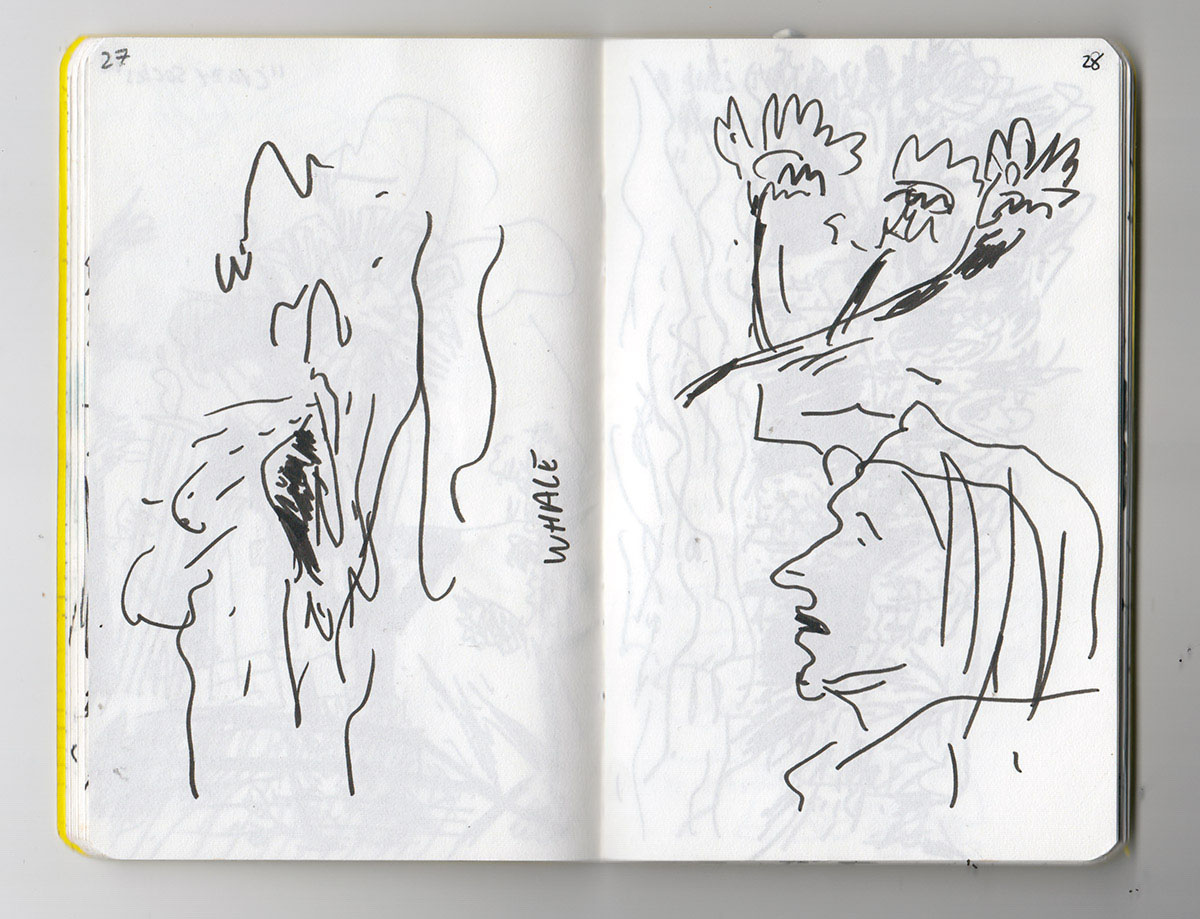 27
WHALE
28